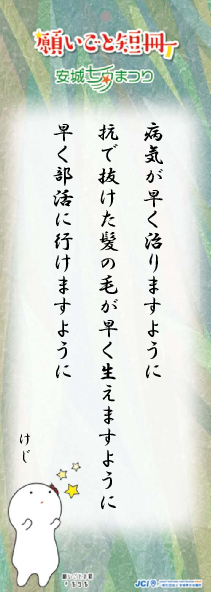 願いごと短冊
安城七夕まつり
病気が早く治りますように
抗で抜けた髪の毛が早く生えますように
早く部活に行けますように
けじ
願いごとの国
JCI